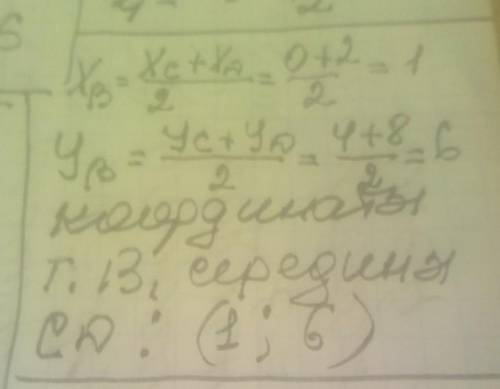 X_B = (X_C + X_D)/2 = (0+2)/2 = 1
Y_B = (Y_C + Y_D)/2 = (4+8)/2 = 6
координаты
т. В, середины
CD : (1 ; 6)